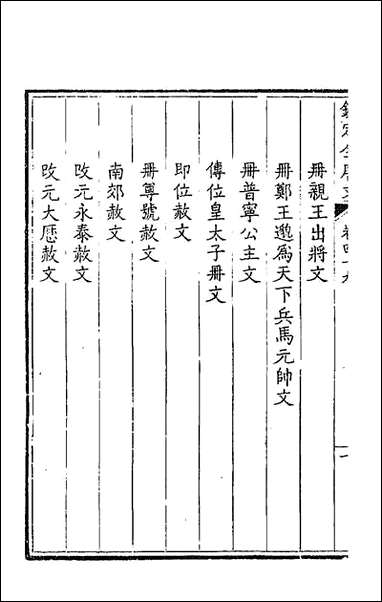 欽定全唐文 卷四十九 一
冊親王出將文
冊鄭王邈爲天下兵馬元帥文
冊普寧公主文
傳位皇太子冊文
即位赦文
冊尊號赦文
南郊赦文
攺元永泰赦文
攺元大厯赦文